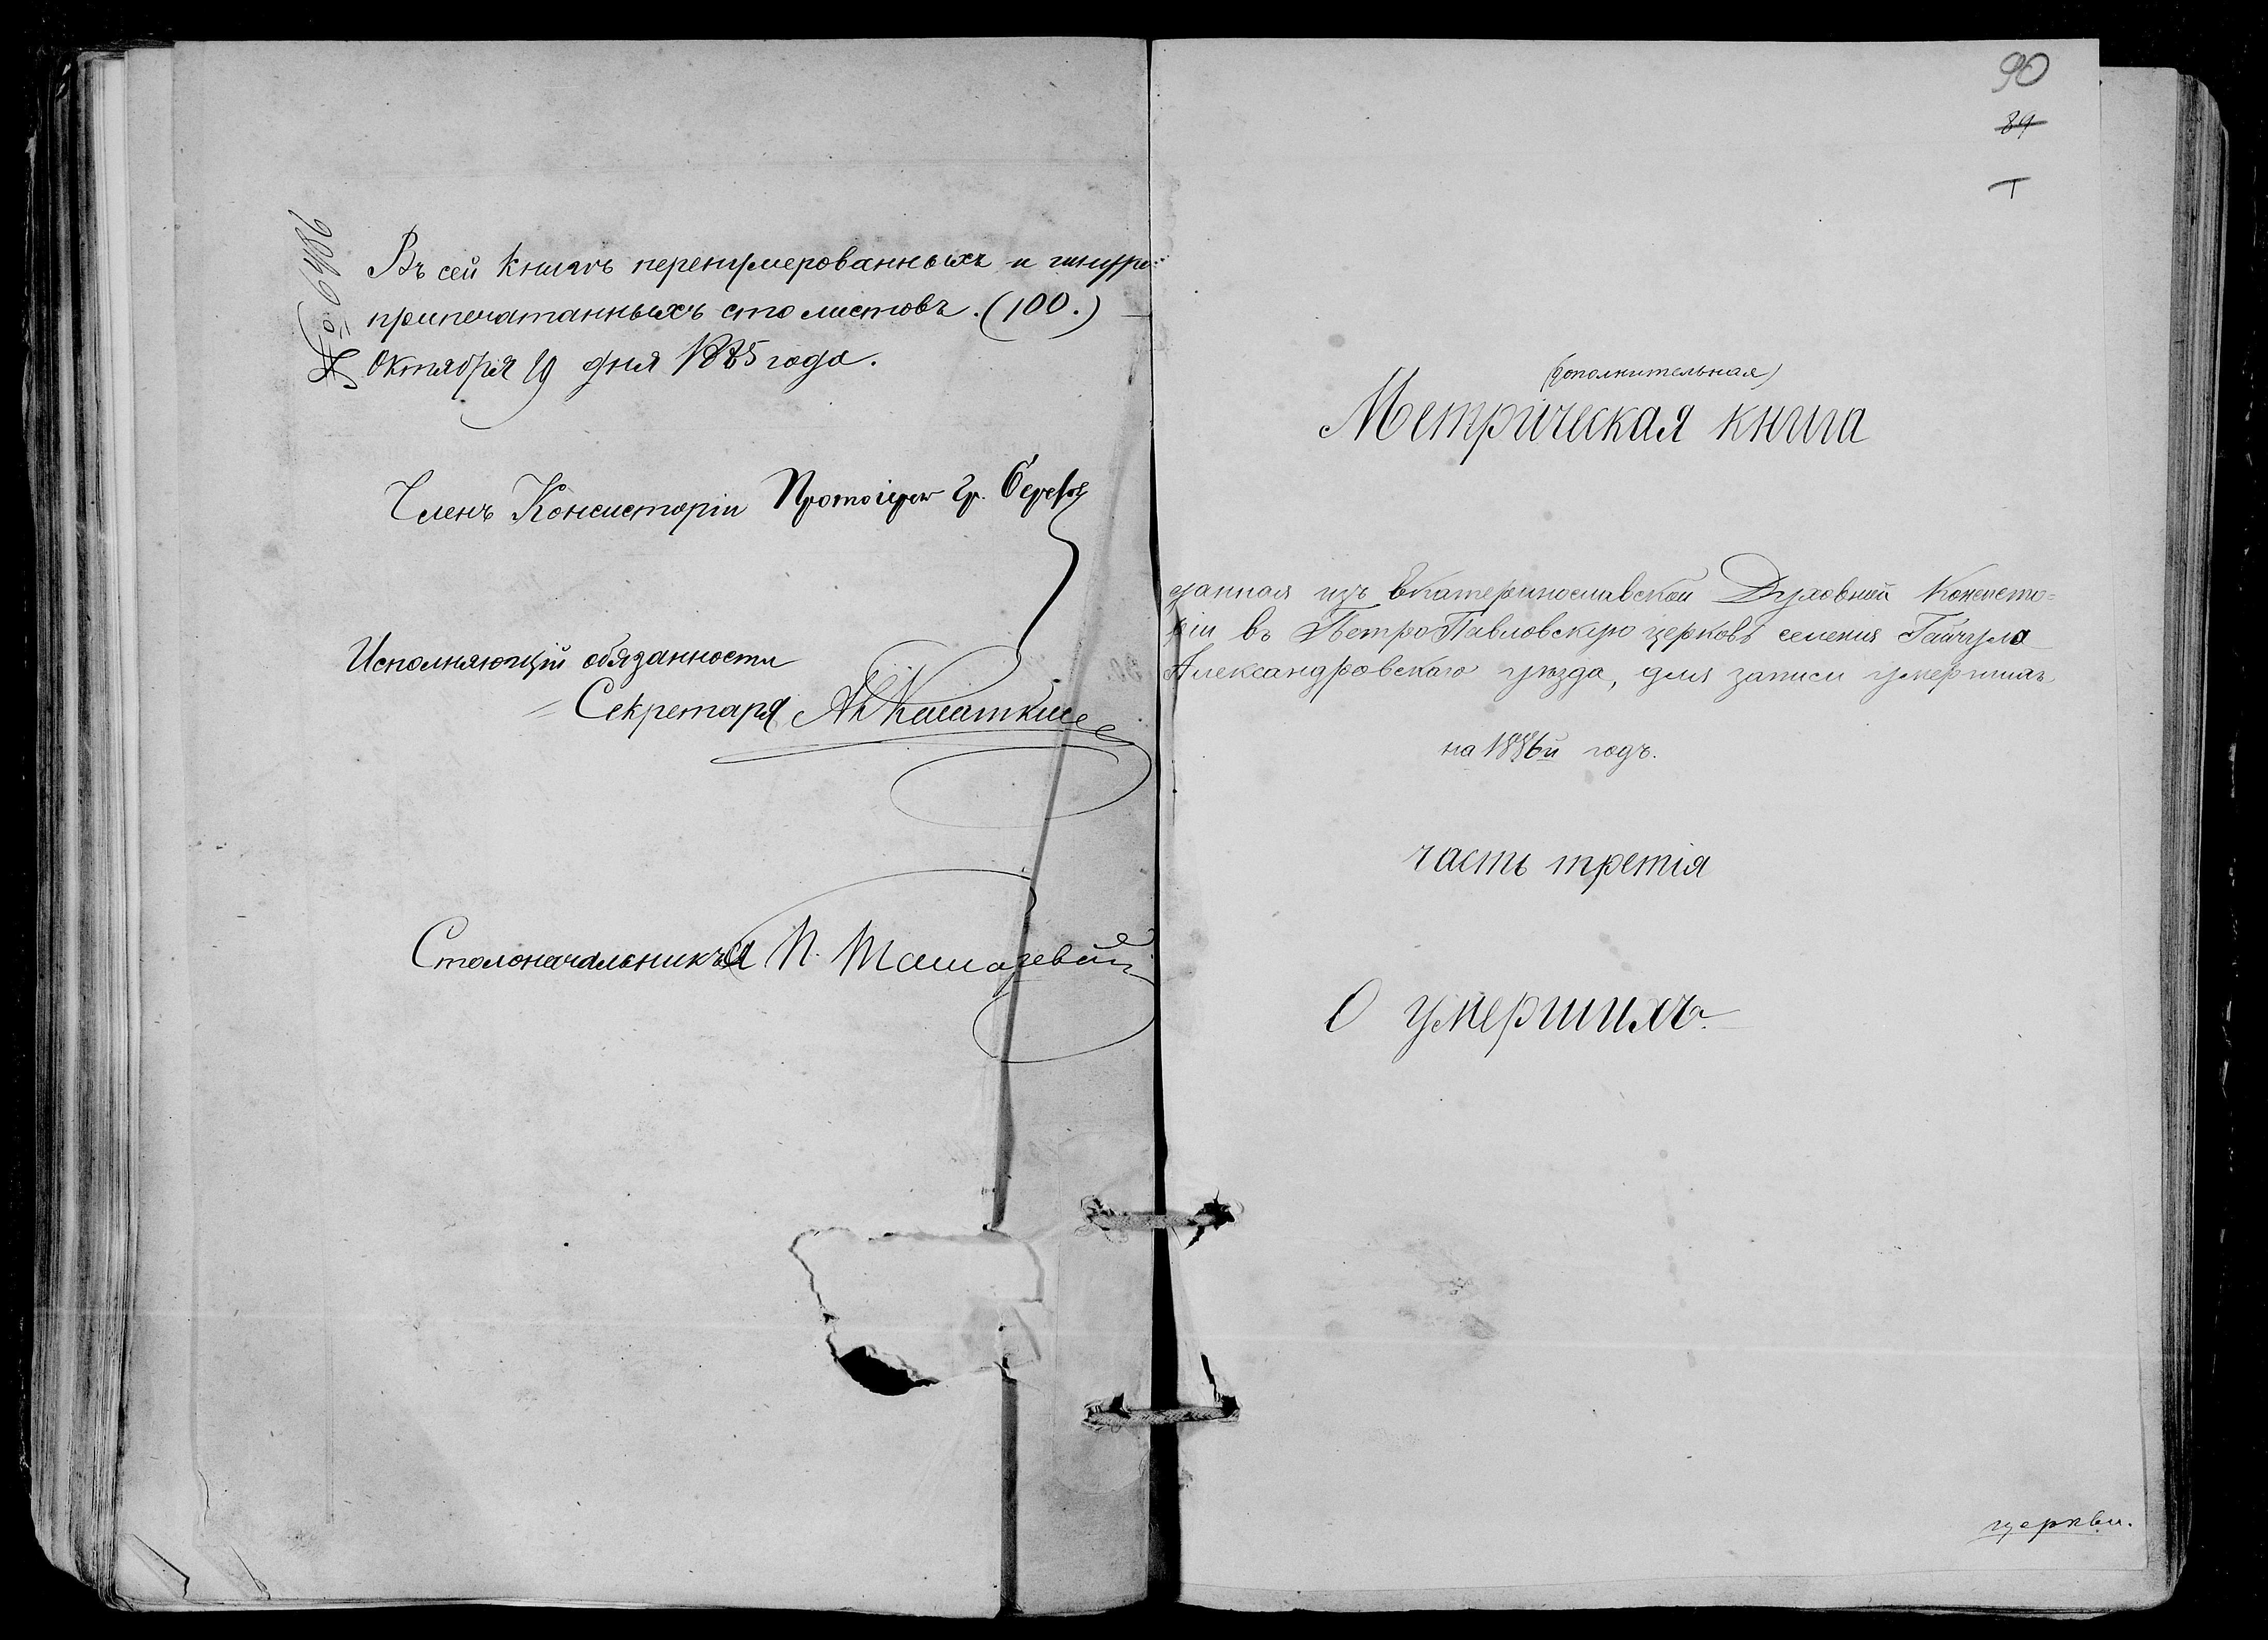 № 6486
Въ сей книгѣ перенумерованныхъ и шнуро=
припечатанныхъ сто листовъ. (100.)
Октября 19 дня 1885 года.
Членъ Консисторіи Протоіерей Гр.
Исполняющій обязанности
Секретаря
Столоначальникъ П.
90
89
1
(дополнительная)
Метрическая книга
данная изъ Екатеринославской Духовной Консисто=
ріи въ Петро Павловскую церковь селенія Гайчула
Александровскаго уѣзда, для записи умершихъ
на 1886й годъ.
часть третія
О умершихъ.
церкви.